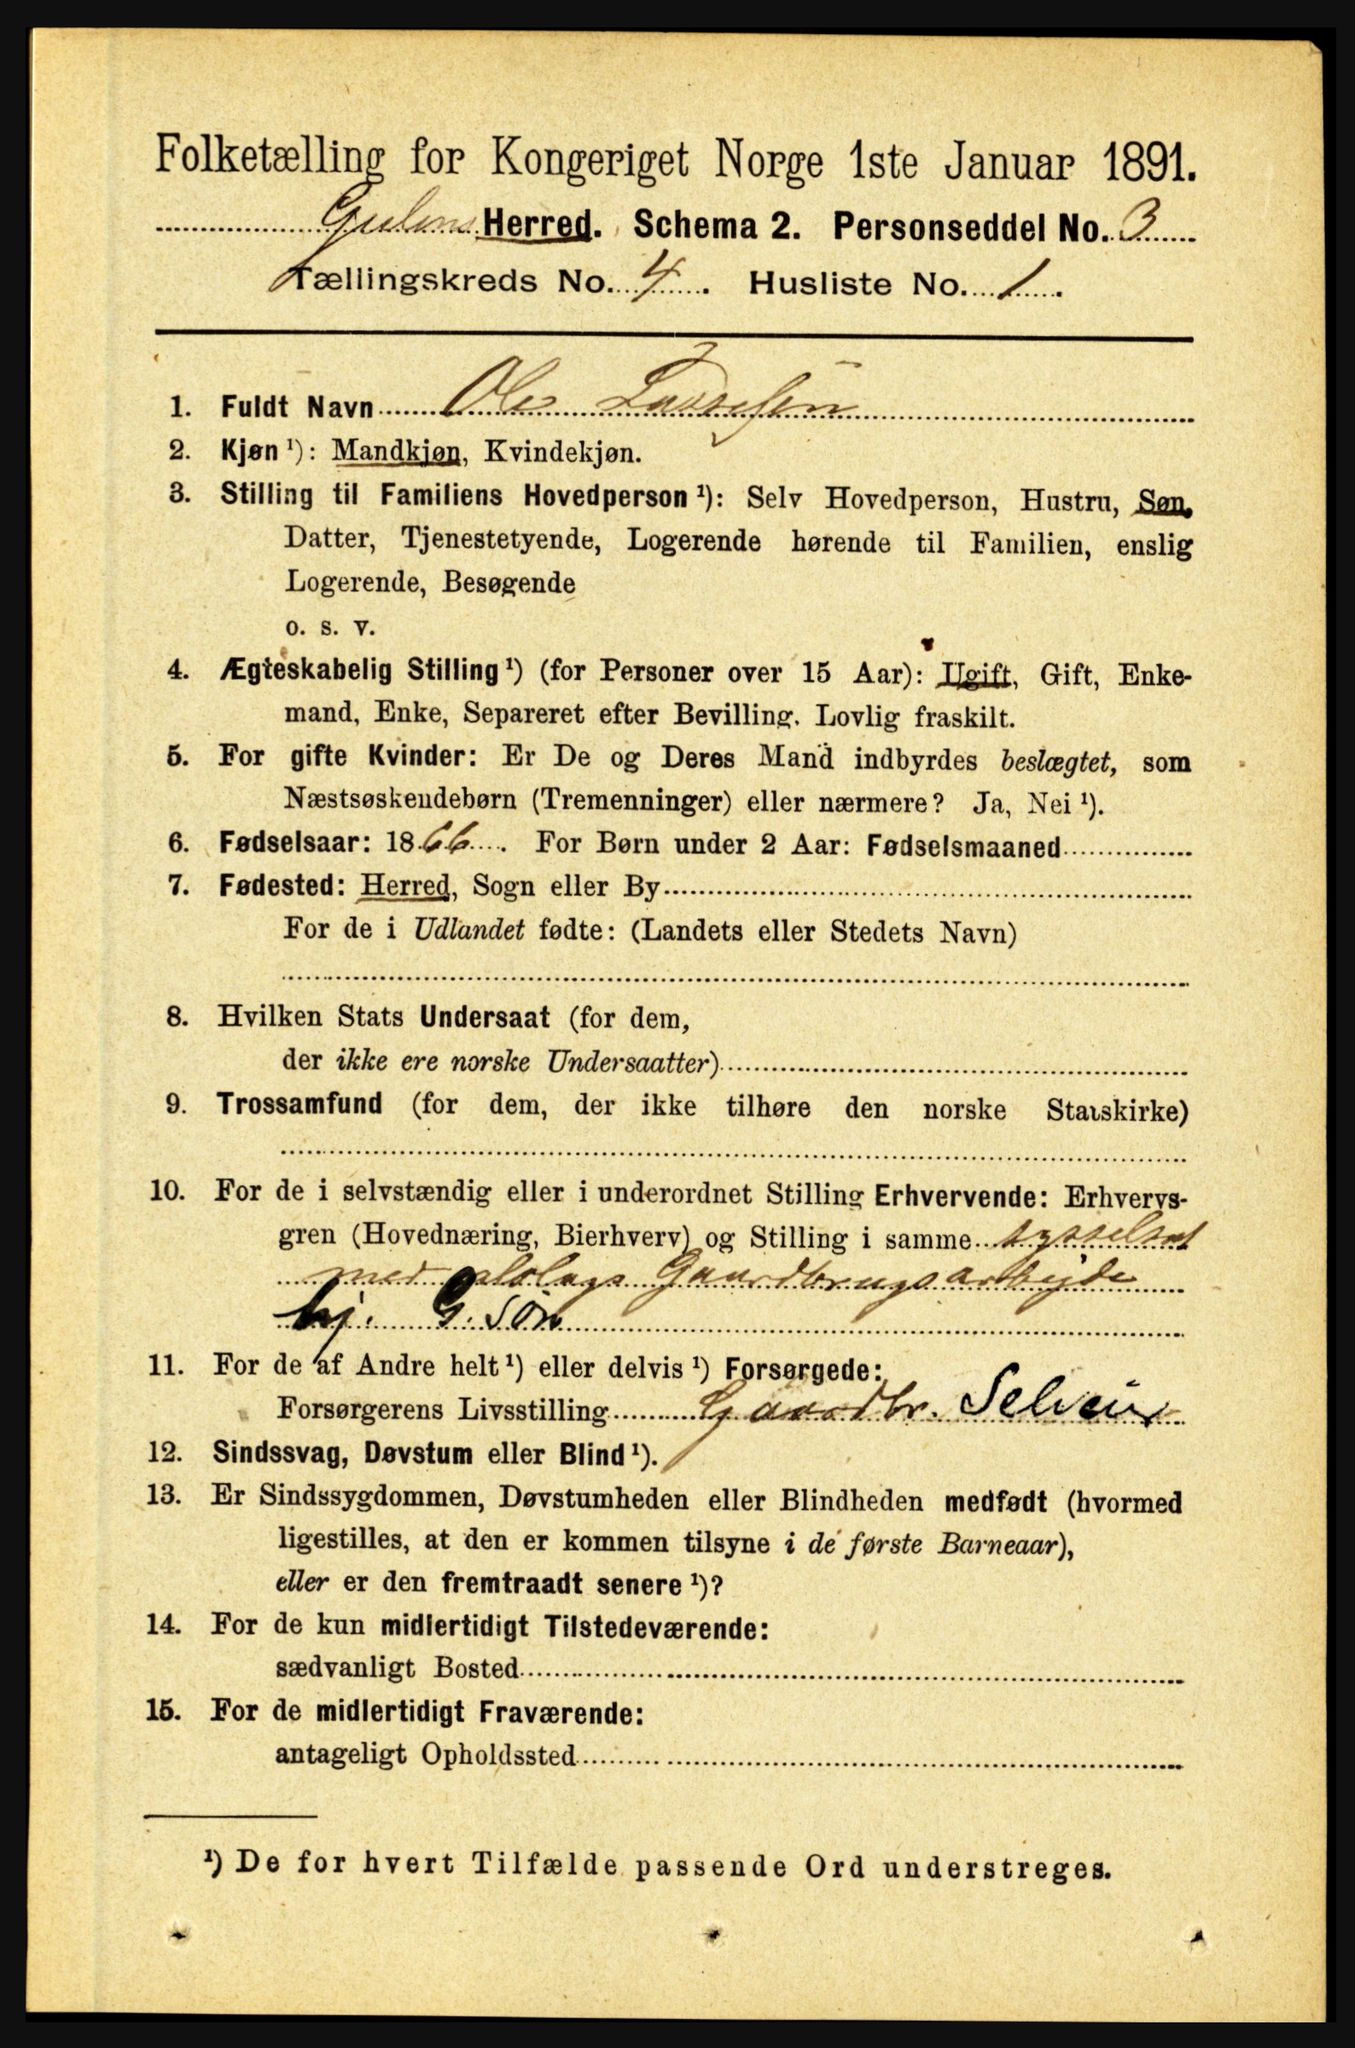 Folketælling for Kongeriget Norge 1ste Januar 1891.
Gulens Herred. Schema 2. Personseddel No. 3
Tællingskreds No. 4. Husliste No. 1.
1. Fuldt Navn Ole Lassesen
2. Kjøn ¹): Mandkjøn, Kvindekjøn.
3. Stilling til Familiens Hovedperson ¹): Selv Hovedperson, Hustru, Søn,
Datter, Tjenestetyende, Logerende hørende til Familien, enslig
Logerende, Besøgende
o. s. v.
4. Ægteskabelig Stilling ¹) (for Personer over 15 Aar): Ugift, Gift, Enke-
mand, Enke, Separeret efter Bevilling. Lovlig fraskilt.
5. For gifte Kvinder: Er De og Deres Mand indbyrdes beslægtet, som
Næstsøskendebørn (Tremenninger) eller nærmere? Ja, Nei ¹).
6. Fødselsaar: 1866. For Børn under 2 Aar: Fødselsmaaned
7. Fødested: Herred, Sogn eller By
For de i Udlandet fødte: (Landets eller Stedets Navn)
8. Hvilken Stats Undersaat (for dem,
der ikke ere norske Undersaatter)
9. Trossamfund (for dem, der ikke tilhøre den norske Statskirke)
10. For de i selvstændig eller i underordnet Stilling Erhvervende: Erhvervs-
gren (Hovednæring, Bierhverv) og Stilling i samme sysselsat
med slags Gaardbrugsarbejde
hj. G. Søn
11. For de af Andre helt ¹) eller delvis ¹) Forsørgede:
Forsørgerens Livsstilling Gaardbr. Selveier
12. Sindssvag, Døvstum eller Blind ¹).
13. Er Sindssygdommen, Døvstumheden eller Blindheden medfødt (hvormed
ligestilles, at den er kommen tilsyne i de første Barneaar),
eller er den fremtraadt senere ¹)?
14. For de kun midlertidigt Tilstedeværende:
sædvanligt Bosted
15. For de midlertidigt Fraværende:
antageligt Opholdssted
¹) De for hvert Tilfælde passende Ord understreges.